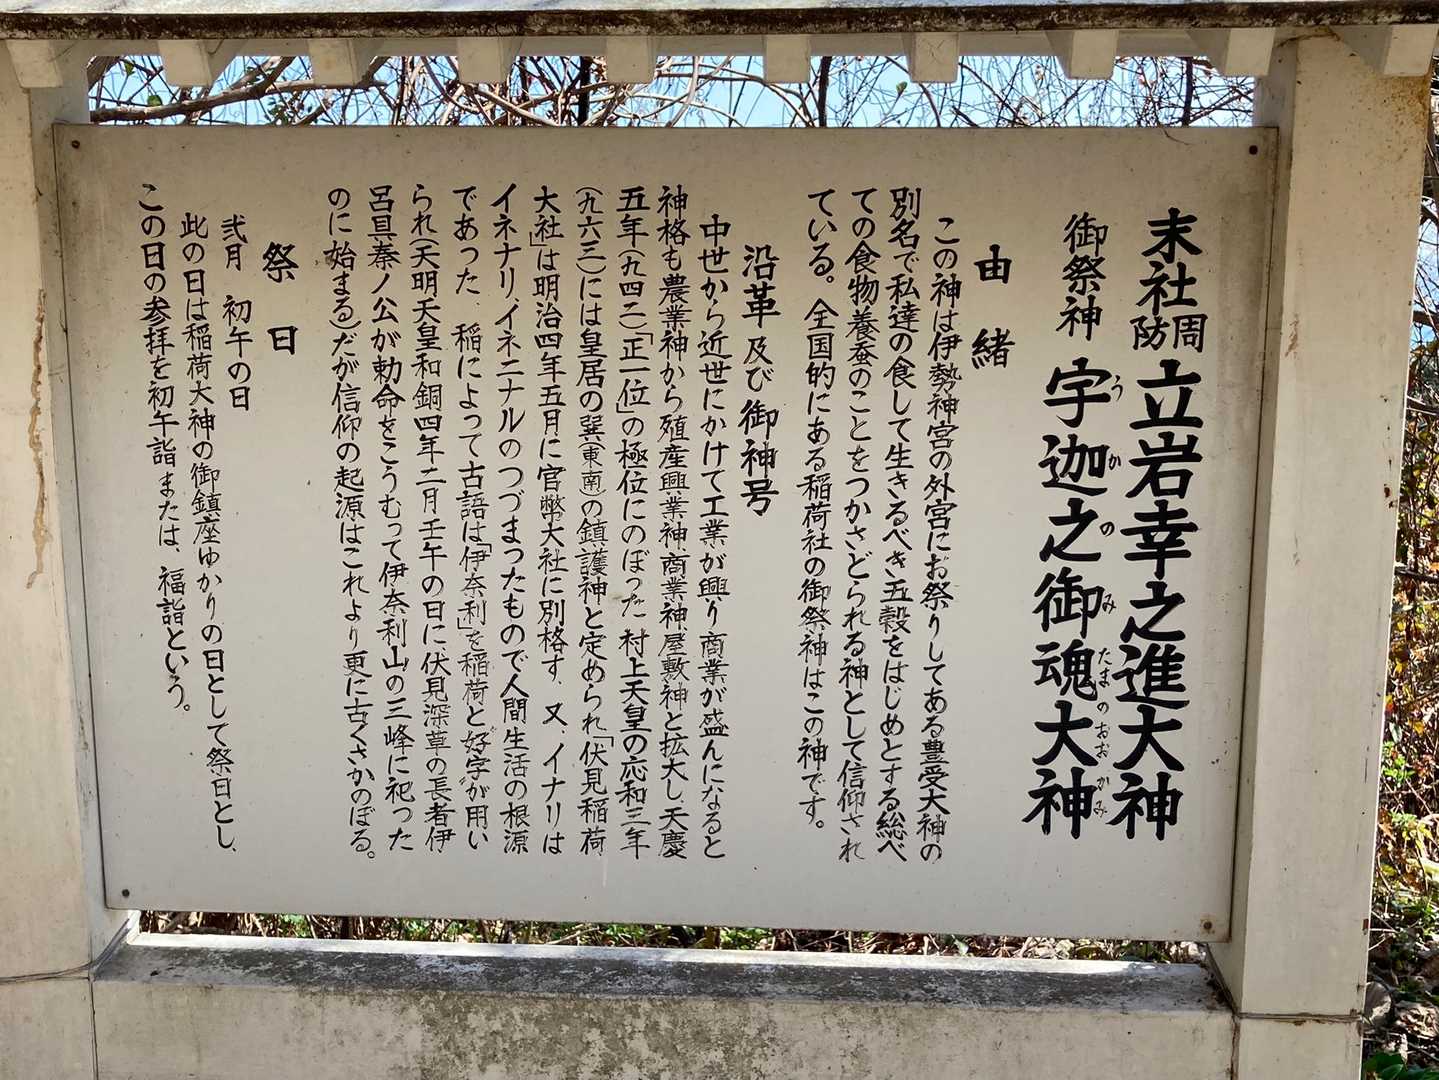 末社周防立岩幸之進大神
御祭神 宇迦之御魂大神
うかのみたまのおおかみ
由緒
この神は伊勢神宮の外宮にお祭りしてある豊受大神の
別名で私達の食して生きるべき五穀をはじめとする総べ
ての食物養蚕のことをつかさどられる神として信仰され
ている。全国的にある稲荷社の御祭神はこの神です。
沿革及び御神号
中世から近世にかけて工業が興り商業が盛んになると
神格も農業神から殖産興業神商業神屋敷神と拡大し、天慶
五年(九四二)「正一位」の極位にのぼった 村上天皇の応和三年
(九六三)には皇居の巽(東南)の鎮護神と定められ「伏見稲荷
大社」は明治四年五月に官幣大社に別格す、又、イナリは
イネナリ、イネニナルのつづまったもので人間生活の根源
であった、稲によって古語は「伊奈利」を稲荷と"好字"が用い
られ(天明天皇和銅四年二月壬午の日に、伏見深草の長者伊
呂具秦ノ公が勅命をこうむって伊奈利山の三峰に祀った
のに始まる)だが信仰の起源はこれより更に古くさかのぼる。
祭日
弐月 初午の日
此の日は稲荷大神の御鎮座ゆかりの日として祭日とし、
この日の参拝を初午詣または、福詣という。